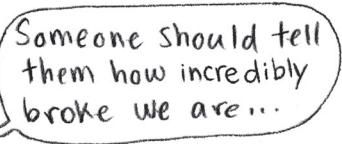 Someone should tell
them how incredibly
broke we are...